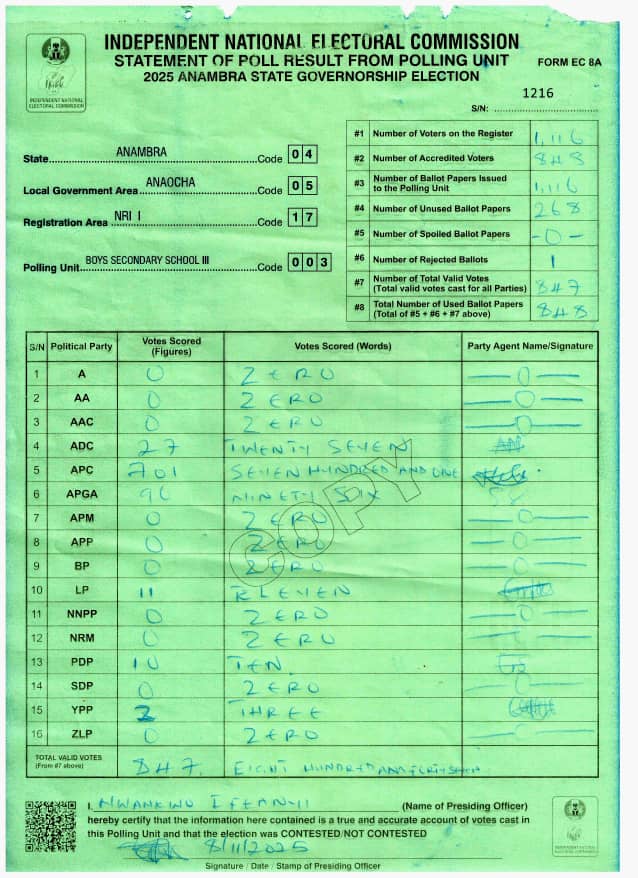 INDEPENDENT NATIONAL ELECTORAL COMMISSION
STATEMENT OF POLL RESULT FROM POLLING UNIT
2025 ANAMBRA STATE GOVERNORSHIP ELECTION
FORM EC 8A
INDEPENDENT NATIONAL
ELECTORAL COMMISSION
1216
S/N:
State ANAMBRA Code 0 4
Local Government Area ANAOCHA Code 0 5
Registration Area NRI I Code 1 7
Polling Unit BOYS SECONDARY SCHOOL III Code 0 0 3
#1 Number of Voters on the Register 1,116
#2 Number of Accredited Voters 848
#3 Number of Ballot Papers Issued to the Polling Unit 1,116
#4 Number of Unused Ballot Papers 268
#5 Number of Spoiled Ballot Papers -0-
#6 Number of Rejected Ballots 1
#7 Number of Total Valid Votes (Total valid votes cast for all Parties) 847
#8 Total Number of Used Ballot Papers (Total of #5 + #6 + #7 above) 848
S/N Political Party Votes Scored (Figures) Votes Scored (Words) Party Agent Name/Signature
1 A 0 ZERO —0—
2 AA 0 ZERO —0—
3 AAC 0 ZERO —0—
4 ADC 27 TWENTY SEVEN
5 APC 701 SEVEN HUNDRED AND ONE
6 APGA 96 NINETY SIX
7 APM 0 ZERO —0—
8 APP 0 ZERO —0—
9 BP 0 ZERO —0—
10 LP 11 ELEVEN
11 NNPP 0 ZERO —0—
12 NRM 0 ZERO
13 PDP 10 TEN
14 SDP 0 ZERO —0—
15 YPP 3 THREE
16 ZLP 0 ZERO —0—
TOTAL VALID VOTES (From #7 above) 847. EIGHT HUNDRED AND FORTY SEVEN
COPY
I, NWANKWO IFEANYI (Name of Presiding Officer)
hereby certify that the information here contained is a true and accurate account of votes cast in
this Polling Unit and that the election was CONTESTED/NOT CONTESTED
8/11/2025
Signature / Date / Stamp of Presiding Officer